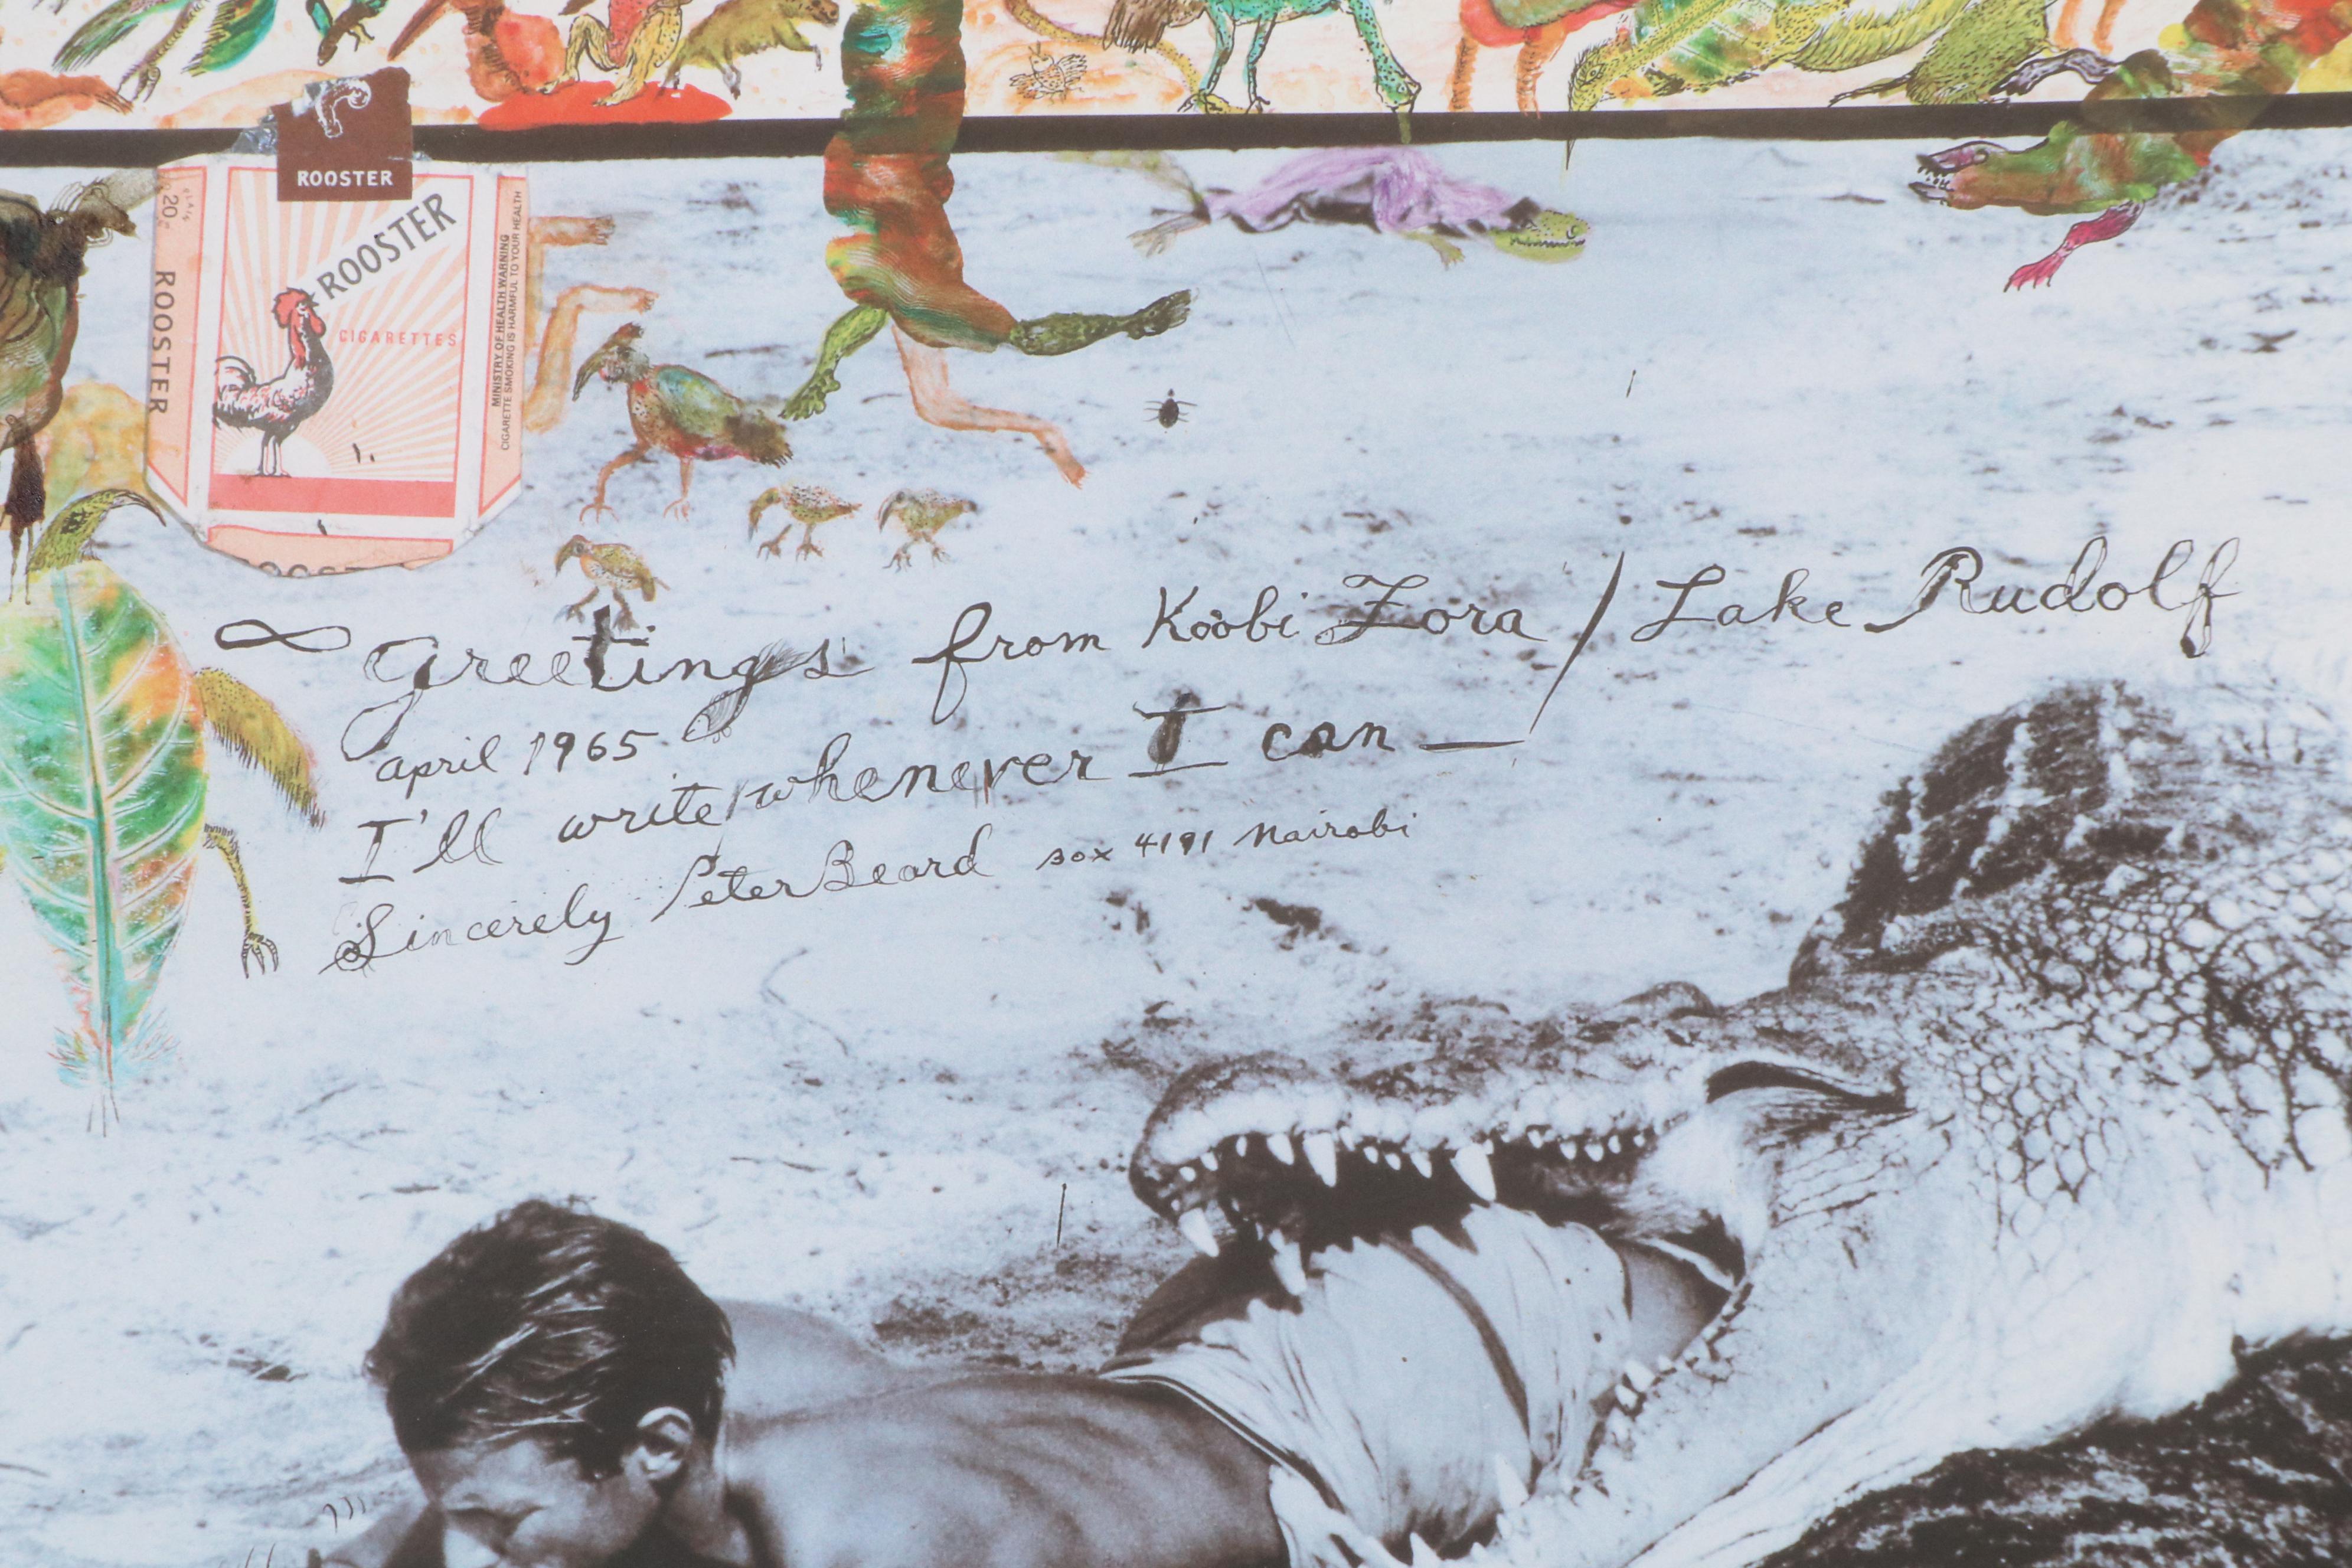 ROOSTER
20
ROOSTER
ROOSTER
CIGARETTES
MINISTRY OF HEALTH WARNING
CIGARETTE SMOKING IS HARMFUL TO YOUR HEALTH
Greetings from Koobi Fora / Lake Rudolf
april 1965
I'll write whenever I can —
Sincerely Peter Beard Box 4191 Nairobi